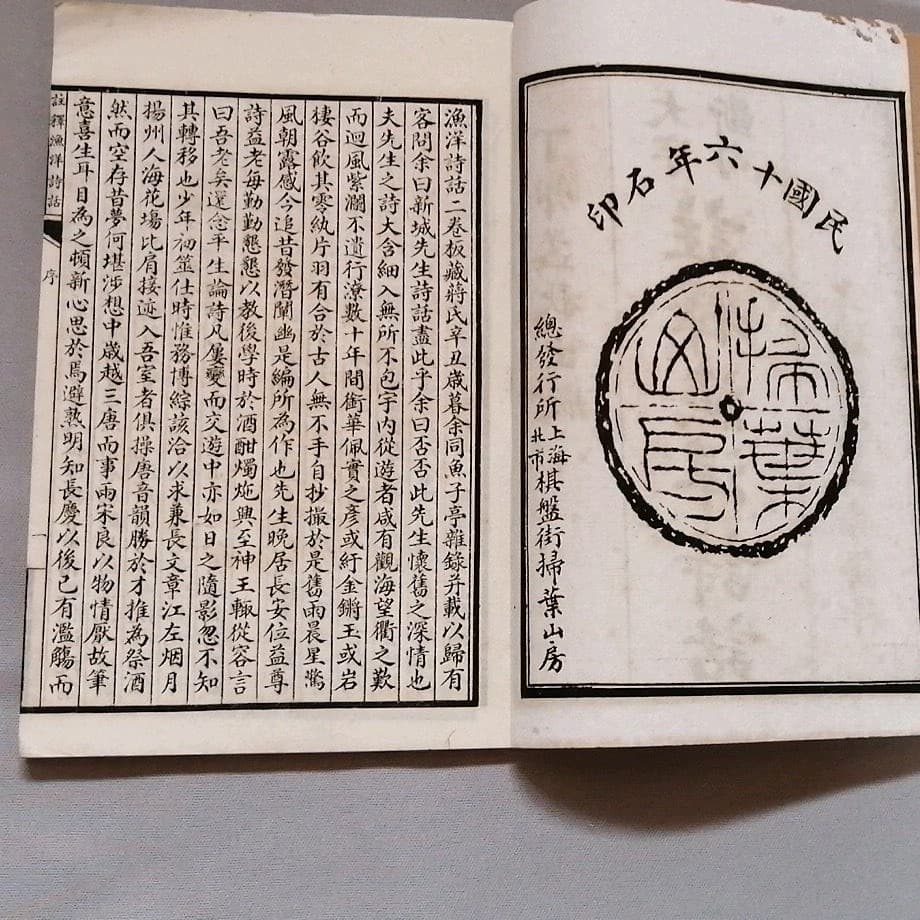 民國十六年石印
掃葉山房
總發行所上海北市棋盤街掃葉山房
漁洋詩話二卷板藏蔣氏辛丑歲暮余同魚子亭雜錄并載以歸有
客問余曰新城先生詩話盡此乎余曰否否此先生懷舊之深情也
夫先生之詩大含細入無所不包宇内從遊者咸有觀海望衢之歎
而迴風紫瀾不遺行潦數十年間銜華佩實之彥或紆金鏘玉或岩
棲谷飲其零紈片羽有合於古人無不手自抄撮於是舊雨晨星蒿
風朝露感今追昔發潛闡幽是編所為作也先生晚居長安位益尊
詩益老每勤勤懇懇以教後學時於酒酣燭炧興至神王輒從容言
曰吾老矣還念平生論詩凡屢變而交遊中亦如日之隨影忽不知
其轉移也少年初筮仕時惟務博綜該洽以求兼長文章江左烟月
揚州人海花場比肩接迹入吾室者俱操唐音韻勝於才推為祭酒
然而空存昔夢何堪涉想中歲越三唐而事兩宋良以物情厭故筆
意喜生耳目為之頓新心思於焉避熟明知長慶以後已有濫觴而
註釋漁洋詩話
序
一